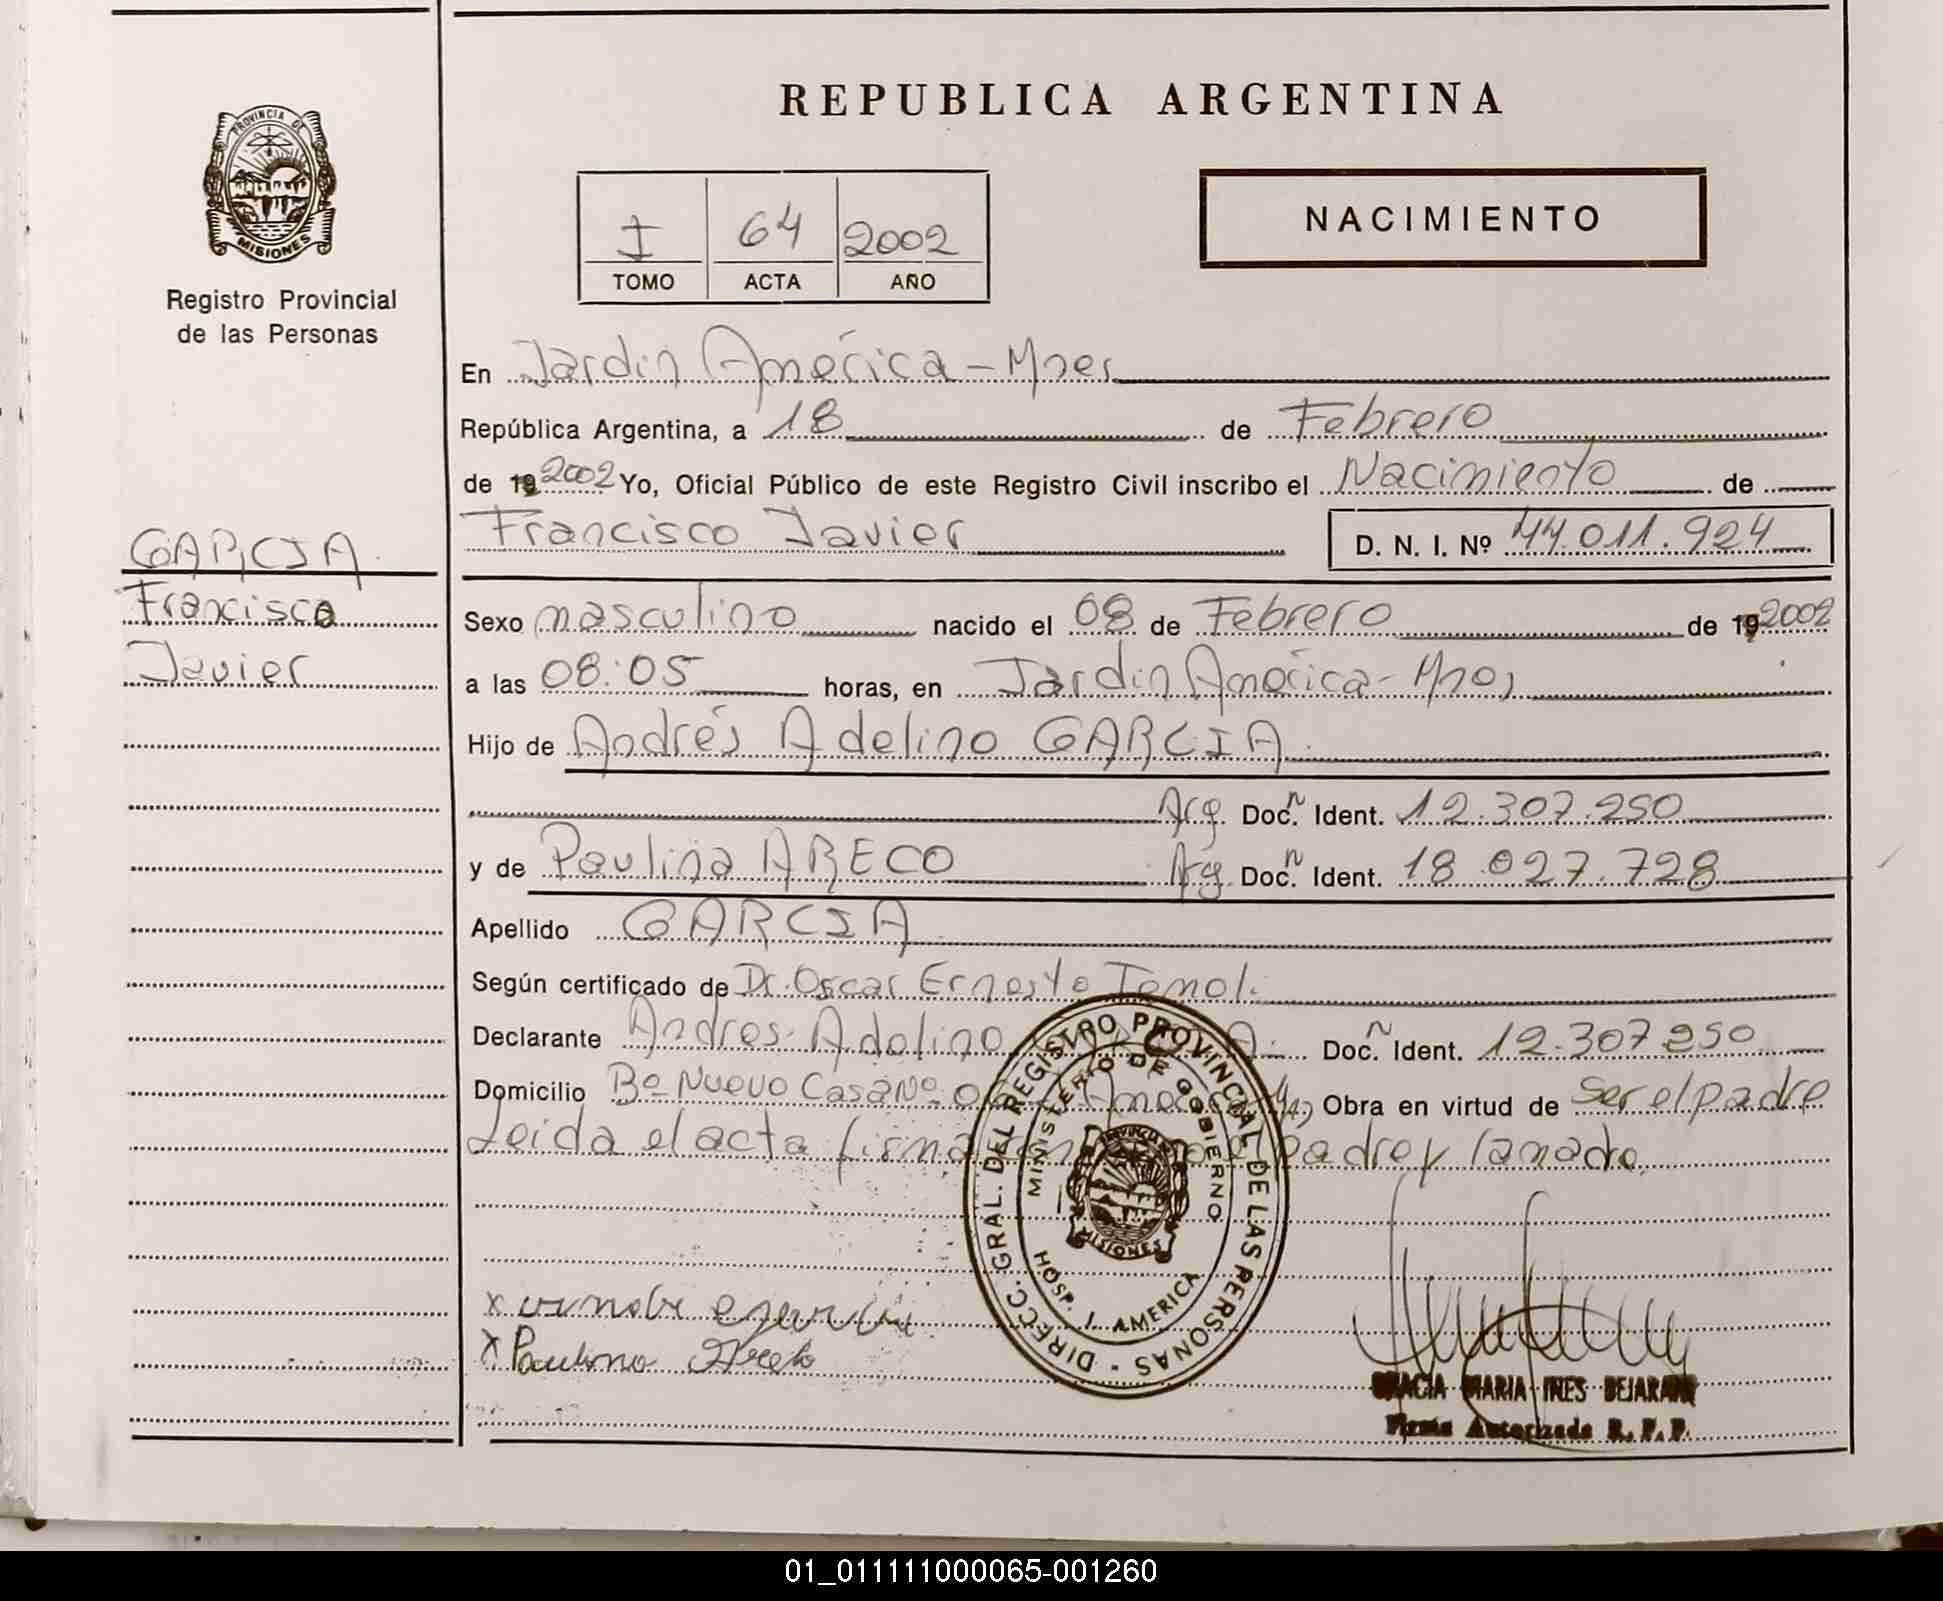 REPUBLICA ARGENTINA
PROVINCIA DE
MISIONES
Registro Provincial
de las Personas
I 64 2002
TOMO ACTA AÑO
NACIMIENTO
En Jardín América - Mnes
República Argentina, a 18 de Febrero
de 19 2002 Yo, Oficial Público de este Registro Civil inscribo el Nacimiento de
Francisco Javier D. N. I. Nº 44.011.924
GARCIA
Francisco
Javier
Sexo masculino nacido el 08 de Febrero de 19 2002
a las 08:05 horas, en Jardín América - Mnes
Hijo de Andrés Adelino GARCIA
Arg. Doc. n Ident. 12.307.250
y de Paulina ARECO Arg. Doc. n Ident. 18.027.728
Apellido GARCIA
Según certificado de Dr. Oscar Ernesto
Declarante Andres Adelino Doc. n Ident. 12.307.250
Domicilio Bº Nuevo Casa Nº Obra en virtud de ser el padre
Leida el acta firman padre y la madre
DIRECC. GRAL. DEL REGISTRO PROVINCIAL DE LAS PERSONAS
MINISTERIO DE GOBIERNO
MISIONES
HOSP. J. AMERICA
x
x Paulina Areco
GRACIA MARIA INES BEJARANO
Firma Autorizada R. P. P.
01_011111000065-001260